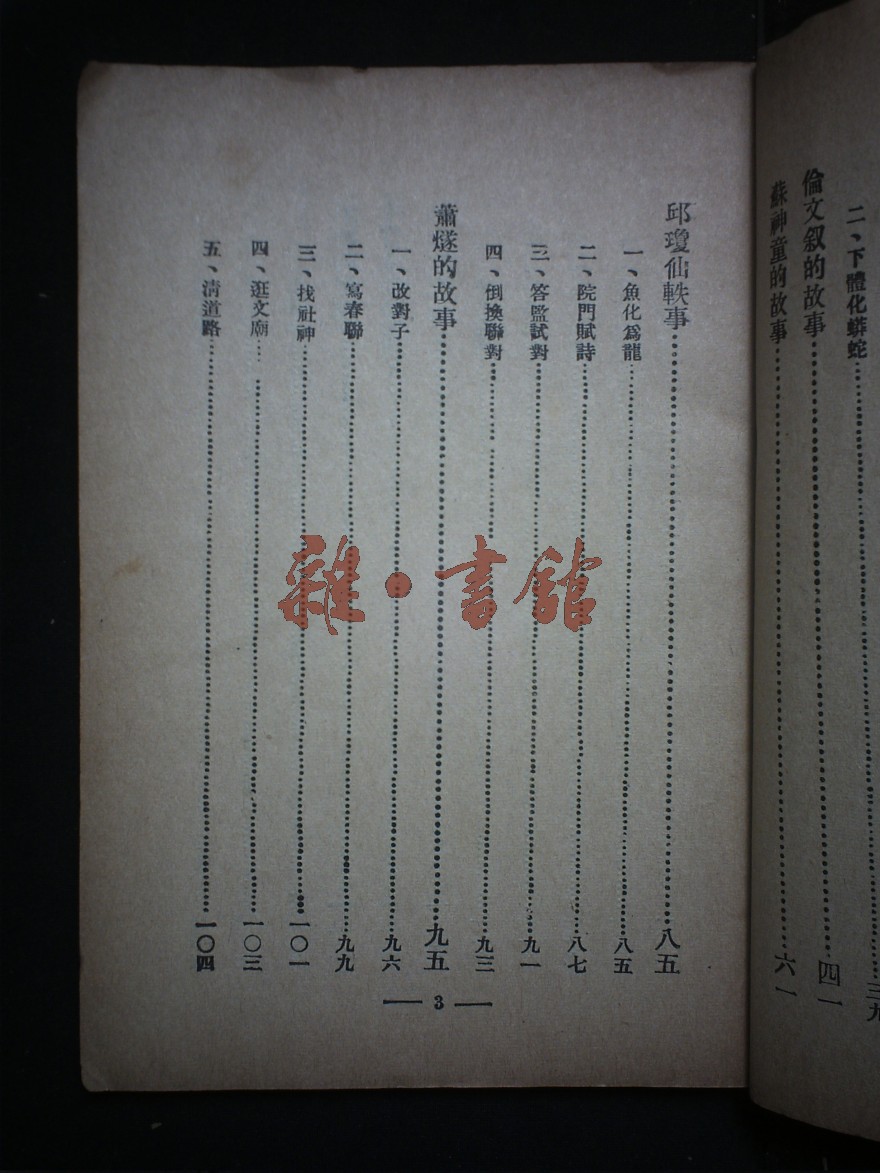 二、下體化蟒蛇……三九
倫文叙的故事……四一
蘇神童的故事……六一
邱瓊仙軼事……八五
一、魚化爲龍……八五
二、院門賦詩……八七
三、答監試對……九一
四、倒換聯對……九三
蕭燧的故事……九五
一、改對子……九六
二、寫春聯……九九
三、找社神……一〇一
四、逛文廟……一〇三
五、淸道路……一〇四
— 3 —
雜·書館